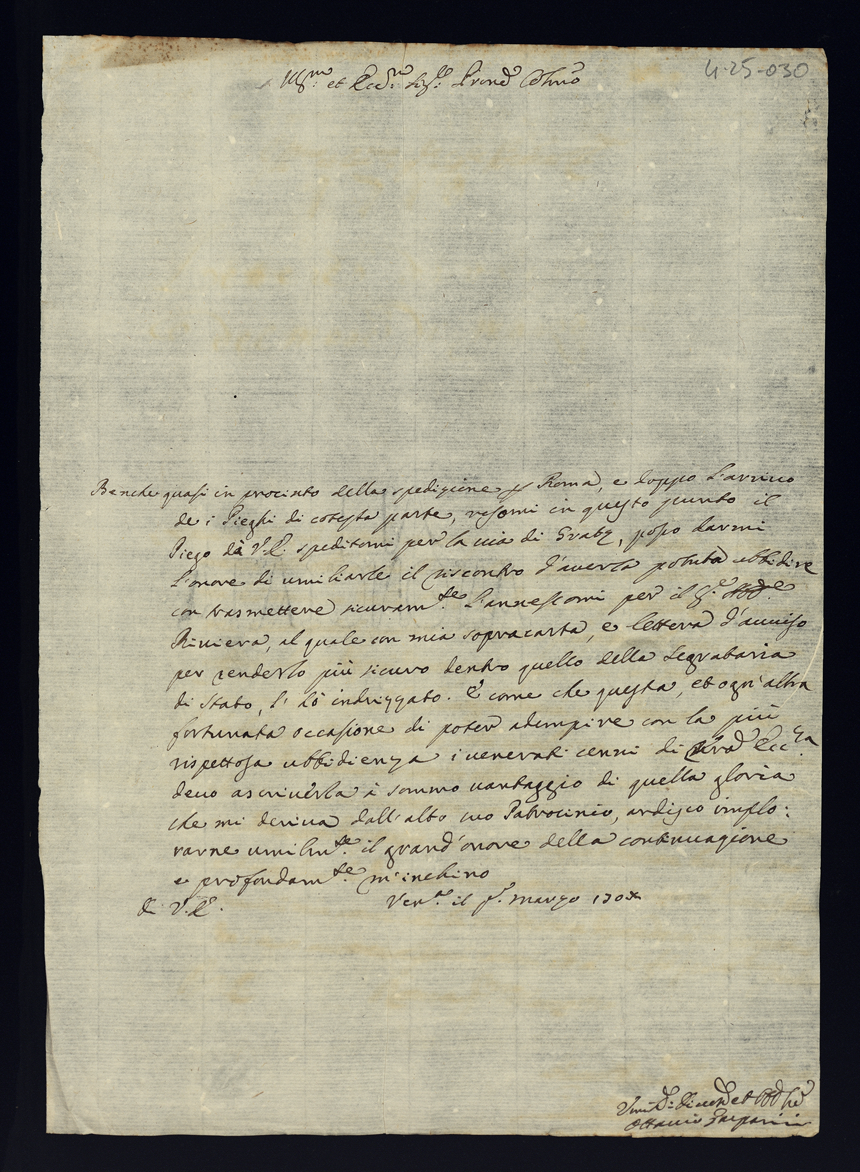 4-25-030
Ill.mo et Ecc.mo Sig.re Pron. Col.mo
Benche quasi in procinto della spedizione p Roma, e doppo l'arrivo
de i Pieghi di cotesta parte, resomi in questo punto il
Piego di V.E. speditomi per la via di Gratz, posso darmi
l'onore di umiliarle il riscontro d'averla potuta ubbidire
con trasmettere sicuram.te l'annessomi per il S.r
Riviera, al quale con mia sopracarta, e lettera d'avviso
per renderlo più sicuro dentro quello della Segretaria
di Stato, l'hò indrizzato. E come che questa, et ogn'altra
fortunata occasione di poter adempire con la più
rispettosa ubbidienza i venerati cenni di Ecc.za
devo ascriverla à sommo vantaggio di quella gloria
che mi deriva dall'alto suo Patrocinio, ardisco implo:
rarne umilm.te il grand'onore della continuazione
e profondam.te m'inchino
di V.E. Ven.a il p.o marzo
Ottavio Gasparini